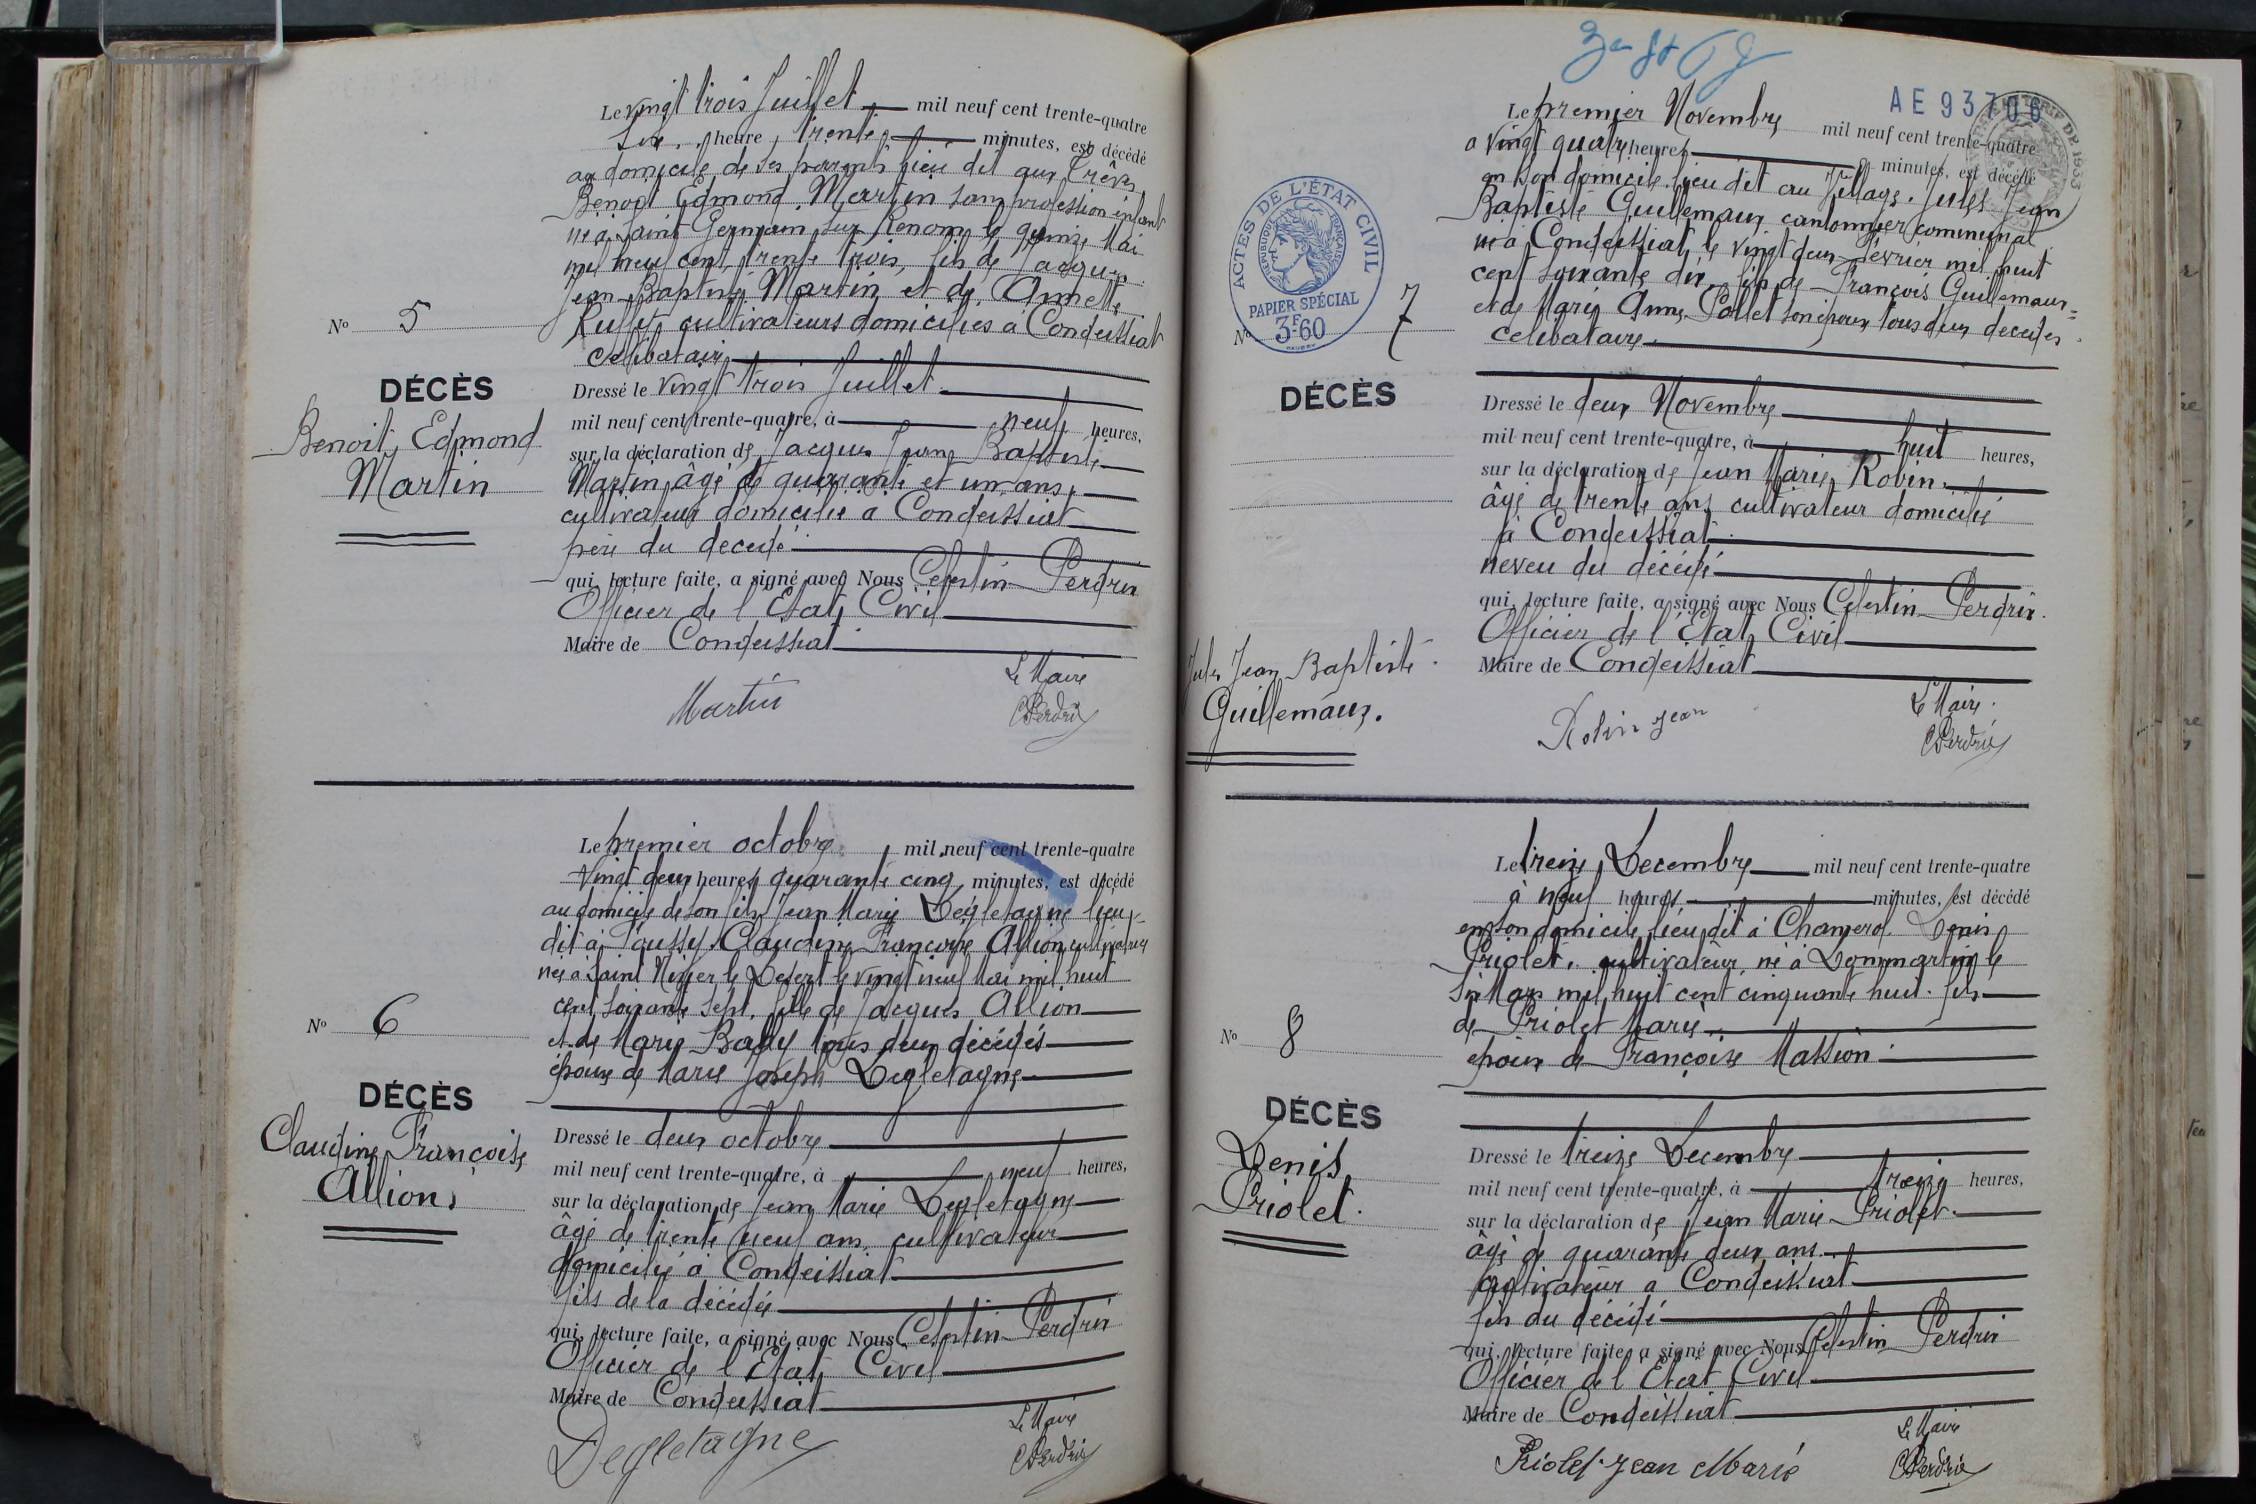 Le vingt trois Juillet mil neuf cent trente-quatre
six heure trente minutes, est décédé
au domicile de ses parents lieu dit aux Trêves
Benoit Edmond Martin sans profession enfant
né à Saint Germain sur Renom le quinze Mai
mil neuf cent trente trois, fils de Jacques
Jean Baptiste Martin et de
cultivateurs domiciliés à Condeissiat
celibataire
No 5
DÉCÈS
Benoit Edmond
Martin
Dressé le vingt trois Juillet
mil neuf cent trente-quatre, à neuf heures,
sur la déclaration de Jacques Jean Baptiste
Martin, âgé de quarante et un ans,
cultivateur domicilié a Condeissiat
père du decedé
qui, lecture faite, a signé avec Nous Celestin Perdrix
Officier de l'Etat Civil
Maire de Condeissiat
Le Maire
Martin
CPerdrix
Le premier octobre mil neuf cent trente-quatre
vingt deux heures quarante cinq minutes, est décédé
au domicile de son fils Jean Marie Degletagne lieu
dit à Claudine Françoise Allion cultivatrice
née à Saint Nizier le Desert le vingt neuf Mai mil huit
cent soixante sept, fille de Jacques Allion
et de Marie Bally tous deux décédés
épouse de Marie Joseph Degletagne
No 6
DÉCÈS
Claudine Françoise
Allion
Dressé le deux octobre
mil neuf cent trente-quatre, à neuf heures,
sur la déclaration de Jean Marie Degletagne
âgé de trente neuf ans, cultivateur
domicilié à Condeissiat
fils de la décédée
qui, lecture faite, a signé avec Nous Celestin Perdrix
Officier de l'Etat Civil
Maire de Condeissiat
Le Maire
Degletagne
CPerdrix
AE 93706
Le premier Novembre mil neuf cent trente-quatre
a vingt quatre heures minutes, est décédé
en son domicile lieu dit au Village. Jules Jean
Baptiste Guillemaux cantonnier communal
né à Condeissiat, le vingt deux Février mil huit
cent soixante dix, fils de François Guillemaux
et de Marie Anne Pollet son epoux tous deux decedés
celibataire
ACTES DE L'ÉTAT CIVIL
RÉPUBLIQUE FRANÇAISE
PAPIER SPÉCIAL
3F60
No 7
DÉCÈS
Jules Jean Baptiste
Guillemaux.
Dressé le deux Novembre
mil neuf cent trente-quatre, à huit heures,
sur la déclaration de Jean Marie Robin
âgé de trente ans cultivateur domicilié
à Condeissiat
neveu du décédé
qui, lecture faite, a signé avec Nous Celestin Perdrix
Officier de l'Etat Civil
Maire de Condeissiat
Le Maire
Robin Jean
CPerdrix
Le treize Decembre mil neuf cent trente-quatre
à neuf heures minutes, est décédé
en son domicile lieu dit à Denis
Priolet, cultivateur né à Dommartin le
six Mars mil huit cent cinquante huit. fils
de Priolet Marie
epoux de Françoise Massion
No 8
DÉCÈS
Denis
Priolet.
Dressé le treize Decembre
mil neuf cent trente-quatre, à treize heures,
sur la déclaration de Jean Marie Priolet
âgé de quarante deux ans
cultivateur a Condeissiat
fils du décédé
qui, lecture faite, a signé avec Nous Celestin Perdrix
Officier de l'Etat Civil
Maire de Condeissiat
Le Maire
Riolet Jean Marie
CPerdrix